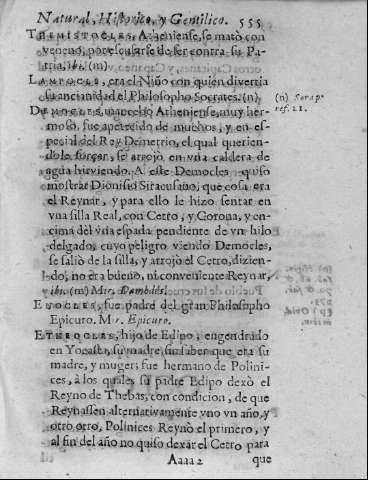 Natural, Historico, y Gentilico. 555
THEMISTOCLES, Atheniense, se matò con
veneno, por escusarse de ser contra su Pa-
tria, ibi. (m)
LAMPOCLE, era el Niño con quien divertia
su ancianidad el Philosopho Socrates. (n)
(n) Serap.
ref. 21.
DEMOCLES, mancebo Atheniense, muy her-
moso, fue apetecido de muchos, y en es-
pecial del Rey Demetrio, el qual querien-
dole forçar, se arrojò en vna caldera de
agua hirviendo. A este Democles quiso
mostrar Dionisio Siracusano, que cosa era
el Reynar, y para ello le hizo sentar en
vna silla Real, con Cetro, y Corona, y en-
cima dèl vna espada pendiente de vn hilo
delgado, cuyo peligro viendo Democles,
se saliò de la silla, y arrojò el Cetro, dizien-
do, no era bueno, ni conveniente Reynar,
ibi. (m) Mir. Dambdès.
ENOCLES, fue padre del gran Philosopho
Epicuro. Mir. Epicuro.
ETHEOCLES, hijo de Edipo, engendrado
en Yocasta, su madre, sin saber que era su
madre, y muger: fue hermano de Polini-
ces, à los quales su padre Edipo dexò el
Reyno de Thebas, con condicion, de que
Reynassen alternativamente vno vn año, y
otro otro, Polinices Reynò el primero, y
al fin del año no quiso dexar el Cetro para
Aaaa 2 que